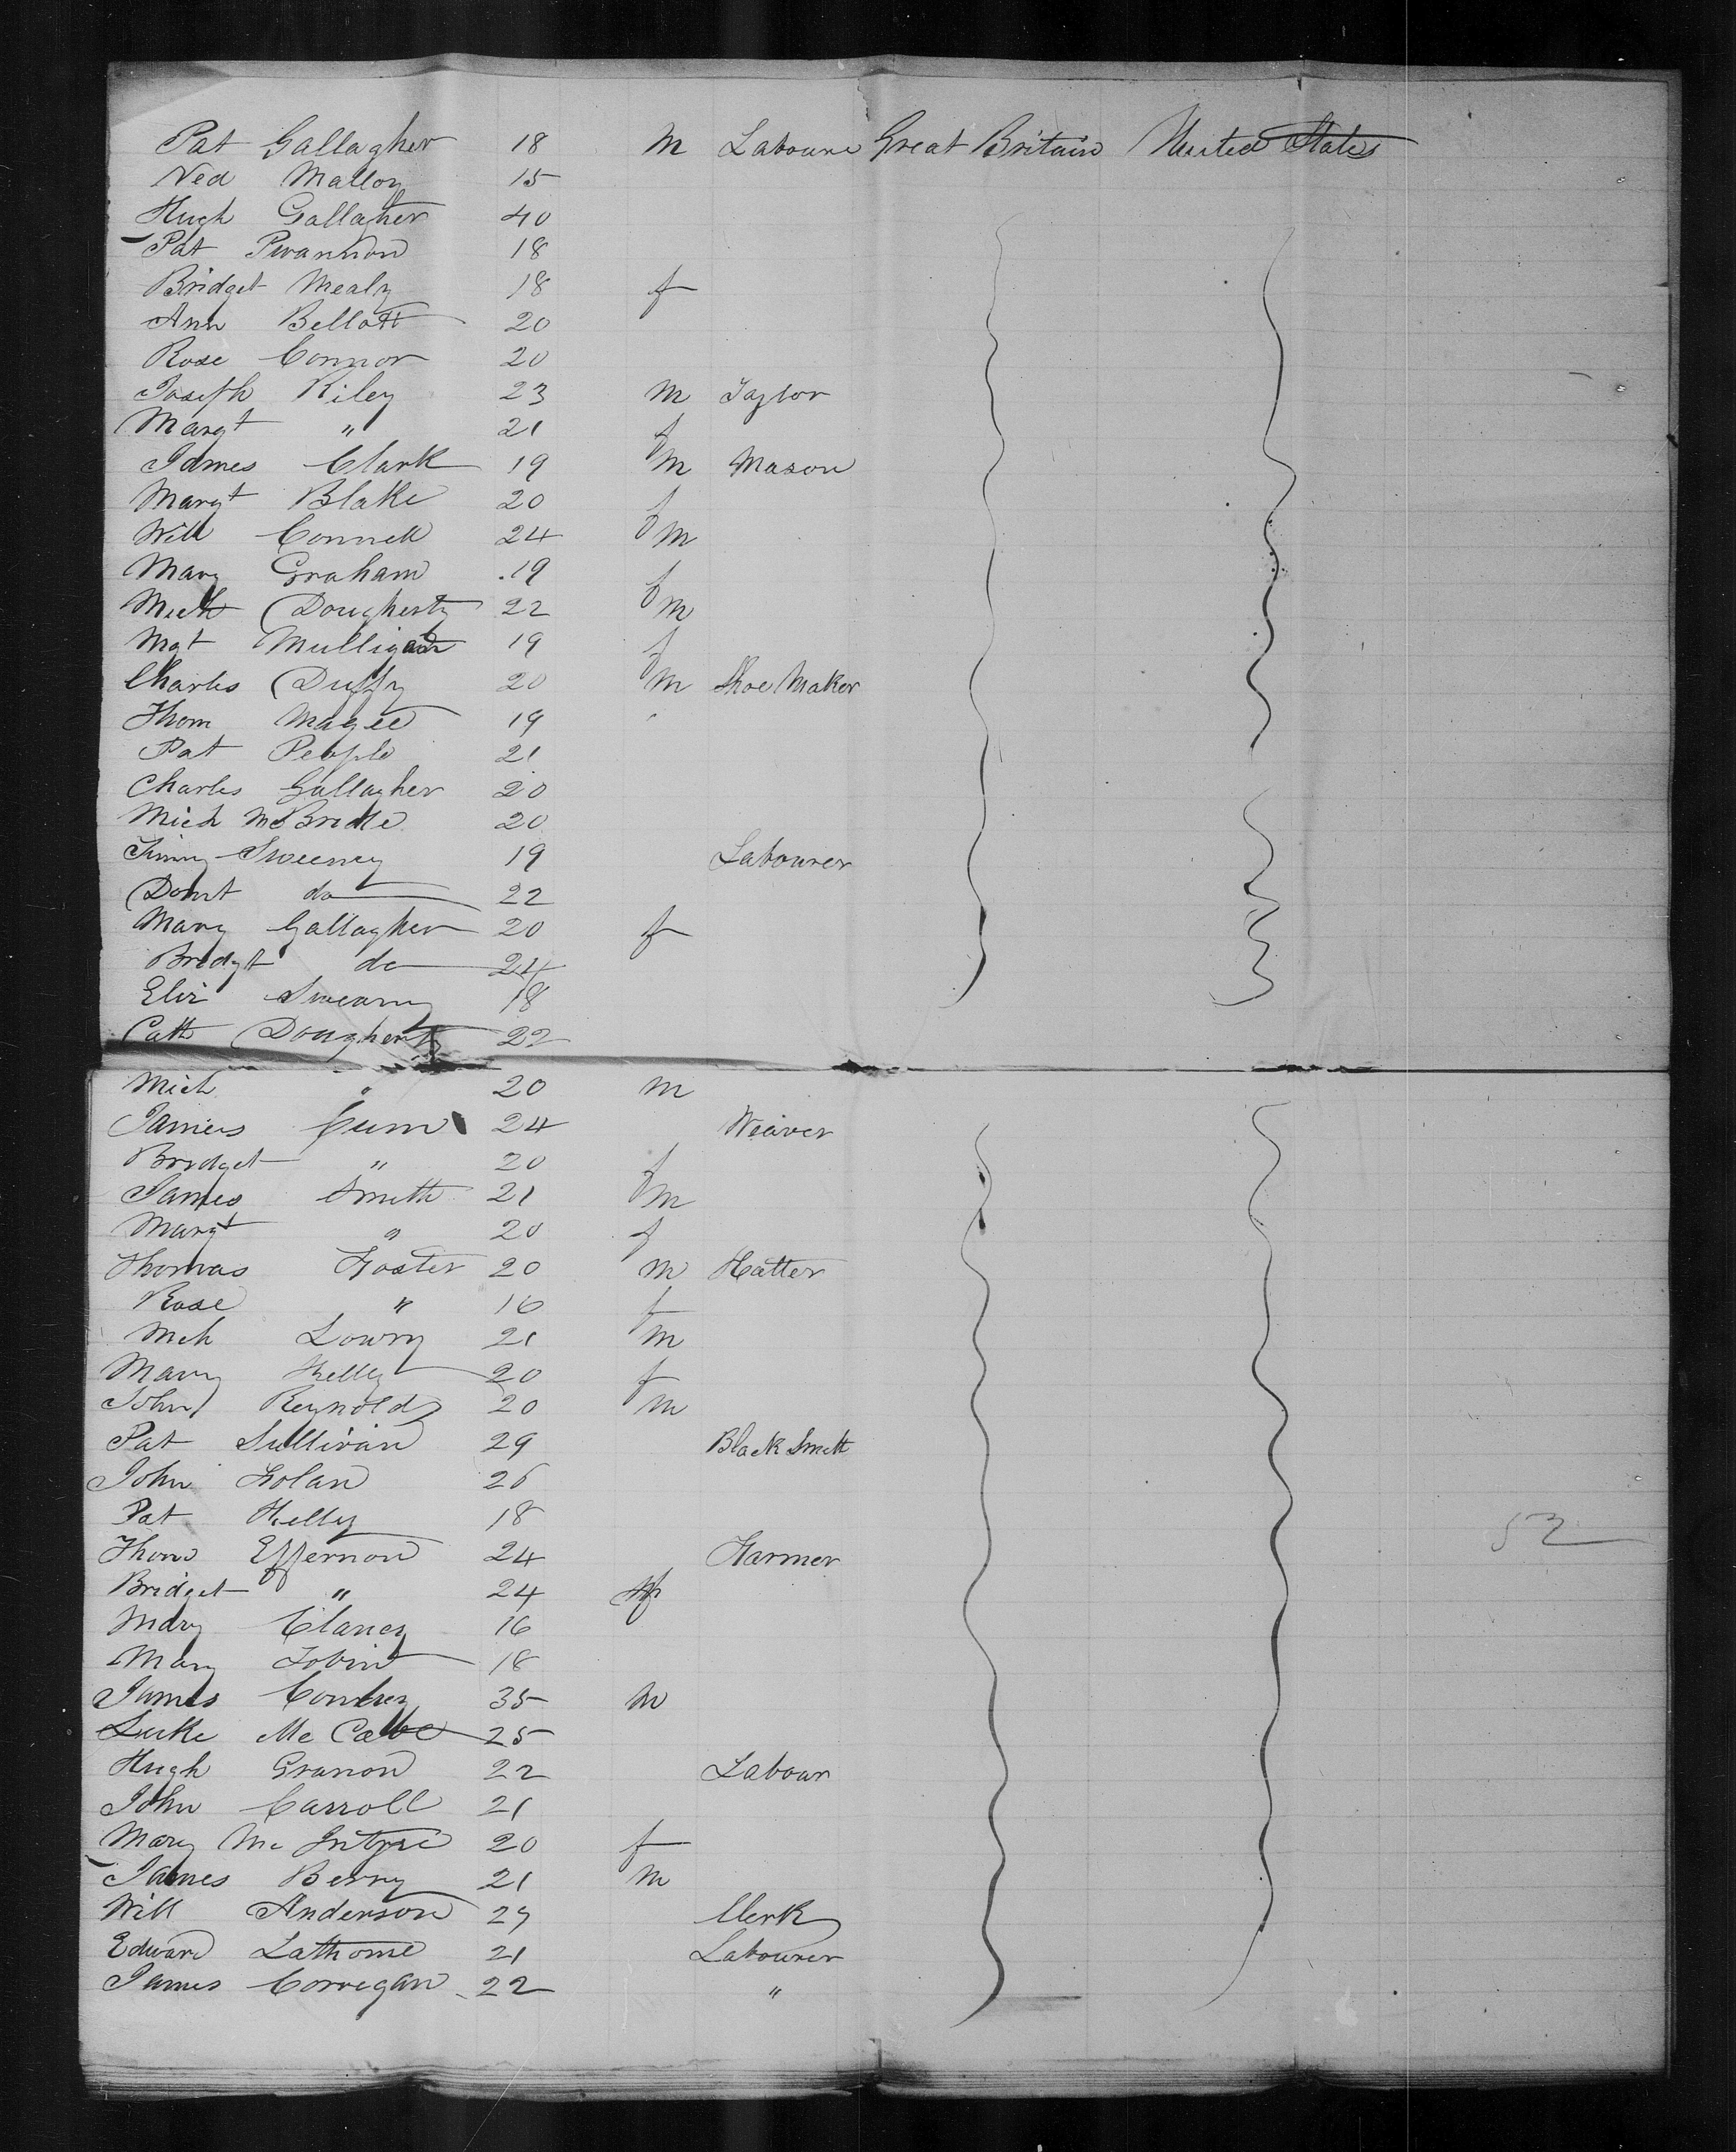 Pat Gallagher 18 M Laboure Great Britain United States
Ned Malloy 15
Hugh Gallagher 40
Pat 18
Bridget Mealy 18 f
Ann Bellott 20
Rose Connor 20
Joseph Riley 23 M Taylor
Margt " 21 f
James Clark 19 M Mason
Margt Blake 20 f
Will Connell 24 M
Mary Graham 19 f
Mich Dougherty 22 M
Mgt Mulligan 19 f
Charles Duffy 20 M Shoe Maker
Thom Magee 19
Pat People 21
Charles Gallagher 20
Mich McBride 20
Jimmy Sweeney 19 Labourer
Domt do 22
Mary Gallagher 20 f
Bridgt do 24
Eliz Sweany 18
Cath Dougherty 22
Mich " 20 M
James 24 Weaver
Bridget " 20 f
James Smith 21 M
Margt " 20 f
Thomas Foster 20 M Hatter
Rose " 16 f
Mch Lowry 21 M
Mary Kelly 20 f
John Reynolds 20 M
Pat Sullivan 29 Black Smith
John 26
Pat Kelly 18 52
Thom Effernon 24 Farmer
Bridget " 24 f
Mary Clancy 16
Mary Tobin 18
James 35 M
Luke Mc Cabe 25
Hugh Granon 22 Labour
John Carroll 21
Mary Mc Intyre 20 f
James Berry 21 M
Will Anderson 29 Clerk
Edward Lathome 21 Labourer
James Corregan 22 "